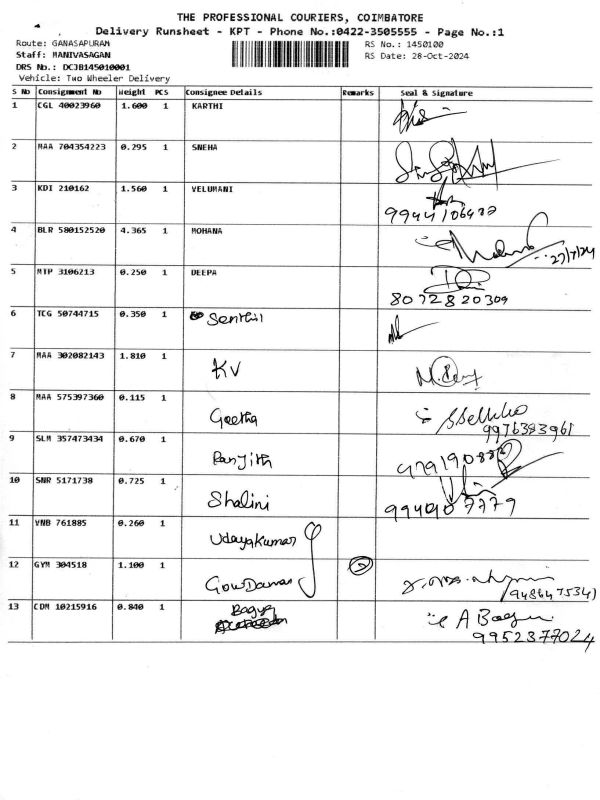 THE PROFESSIONAL COURIERS, COIMBATORE
Delivery Runsheet - KPT - Phone No.:0422-3505555 - Page No.:1
Route: GANASAPURAM RS No.: 1450100
Staff: MANIVASAGAN RS Date: 28-Oct-2024
DRS No.: DCJB145010001
Vehicle: Two Wheeler Delivery
S No Consignment No Weight PCS Consignee Details Remarks Seal & Signature
1 CGL 40023960 1.600 1 KARTHI
2 MAA 704354223 0.295 1 SNEHA
3 KDI 210162 1.560 1 VELUMANI
4 BLR 580152520 4.365 1 MOHANA
5 MTP 3106213 0.250 1 DEEPA
8072820309
6 TCG 50744715 0.350 1 Senthil
7 MAA 302082143 1.810 1 KV
8 MAA 575397360 0.115 1 Geetha
9976383961
9 SLM 357473434 0.670 1 Ranjith
10 SNR 5171738 0.725 1 Shalini
11 VNB 761885 0.260 1 Udayakumar
12 GYM 304518 1.100 1 2
13 CDM 10215916 0.840 1
9952377024